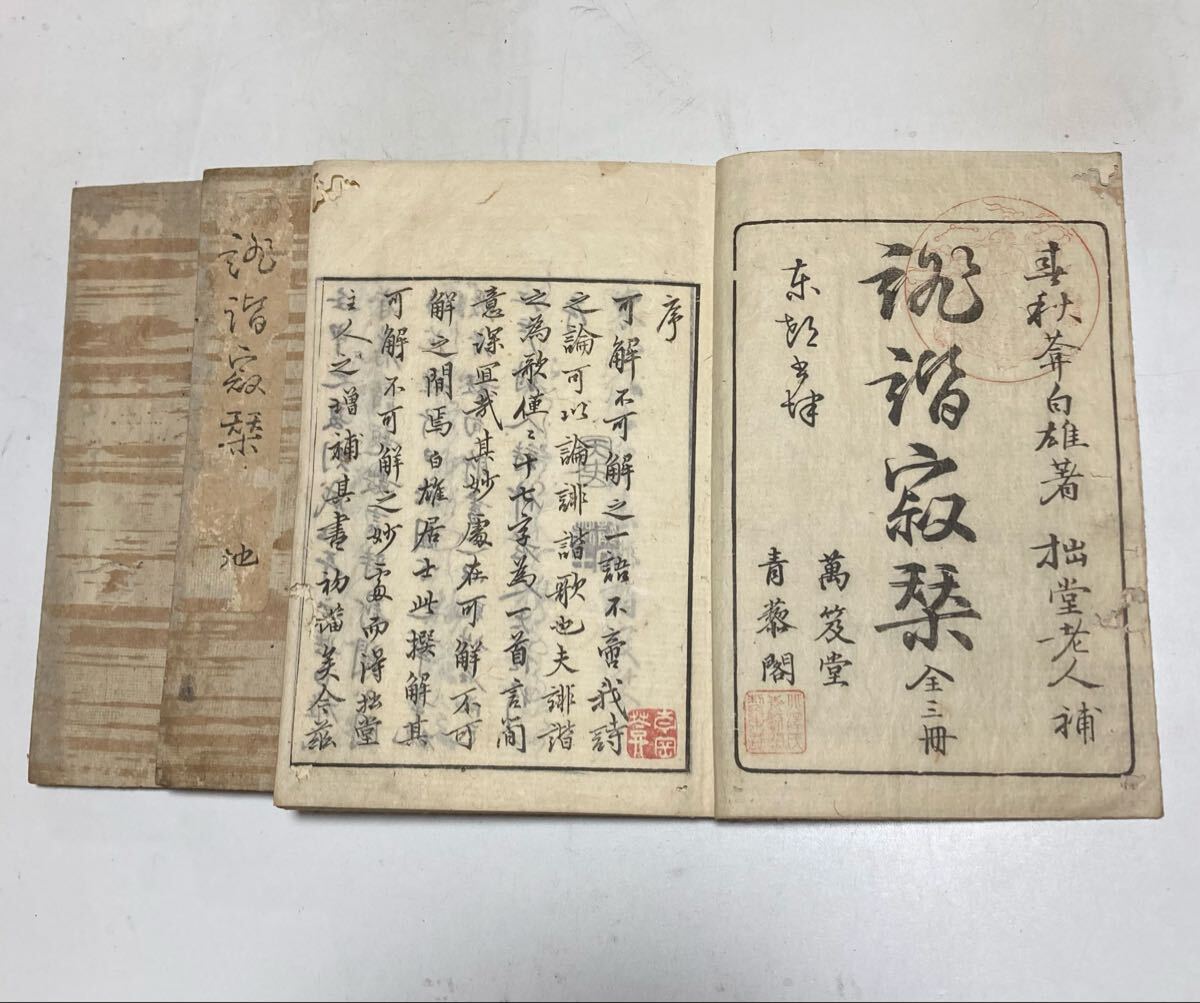 春秋菴白雄著 拙堂老人補
誹諧寂栞 全三冊
东都书肆
萬笈堂
青藜閣
序
可解不可解之一語不啻我詩
之論可以論誹諧歌也夫誹諧
之為歌僅〻十七字為一首言简
意深宜哉其妙處在可解不可
解之間焉白雄居士此撰解其
可解不可解之妙而得拙堂
主人之增補其書初
美今茲
誹諧寂栞